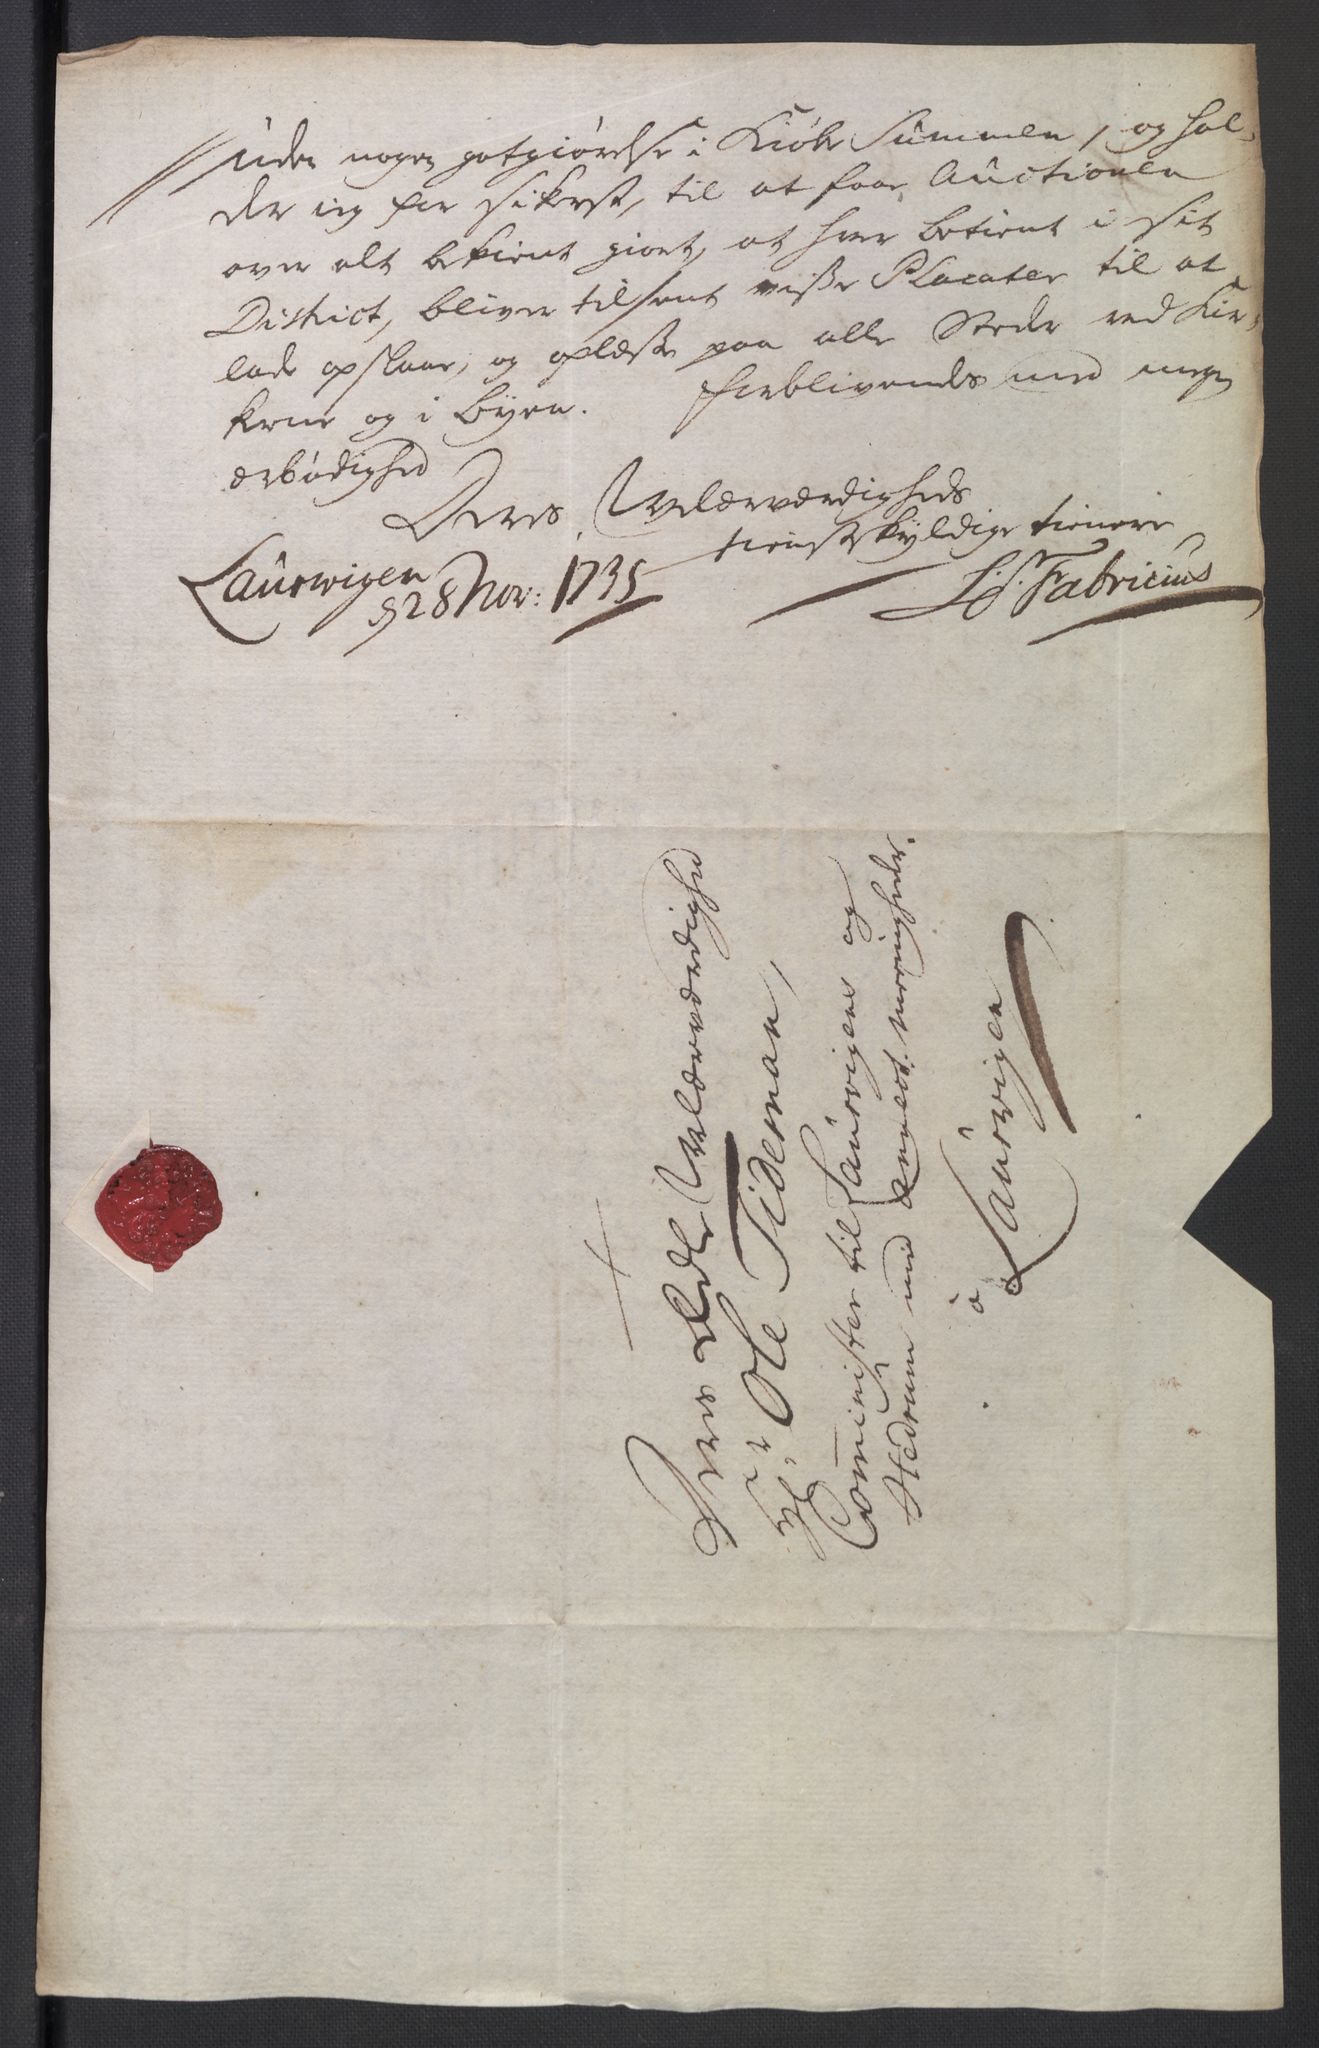 uden nogen gotgiørelse i Kiøbe Summen, og hol-
der ieg for sikerst, til at faae Auctionen
over alt bekient giort, at hver betient i sit
District, bliver tilsent visse Placater til at
lade opslaae, og oplæse paa alle Steder ved Kir-
kerne og i Byen. forblivendes med megen
ærbødighed
Deres Velærværdigheds
tienstskyldige tienere
Laurwigen
d 28 Nov: 1735
Fabricius
Deres Ædle Velærværdighed
Hr. Ole Tideman,
Com̄inister til Laurvigens og
Hedrum med annect. meenigheder.
a
Laurvigen